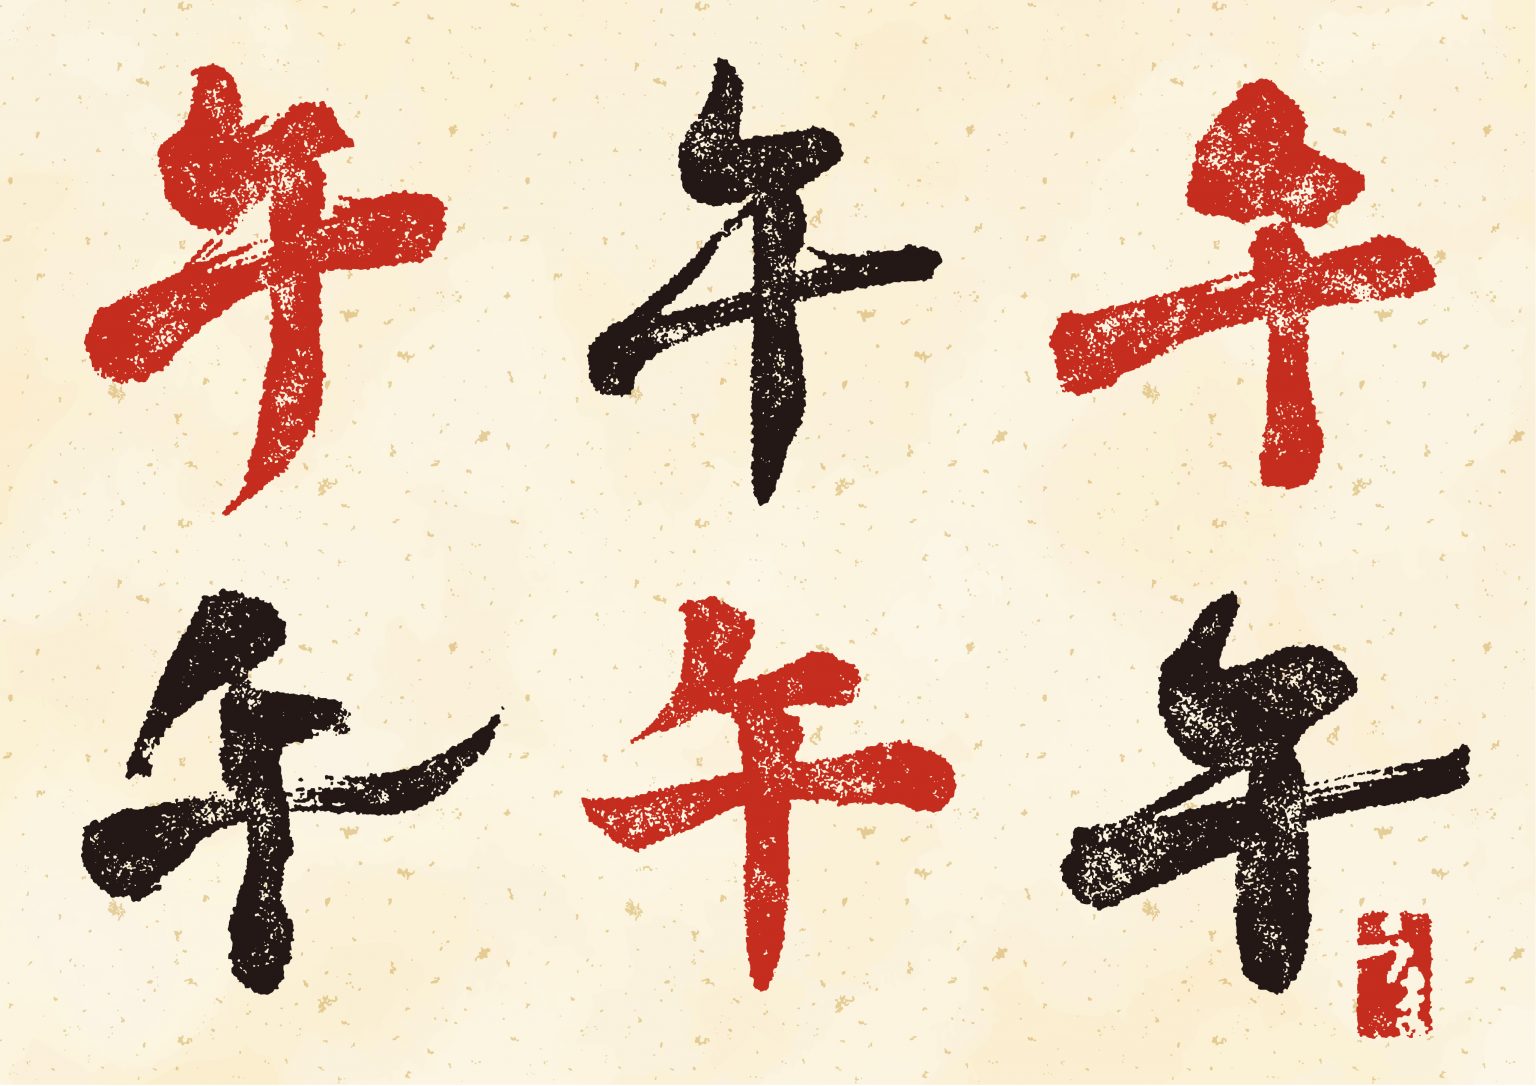 午 午 午
午 午 午